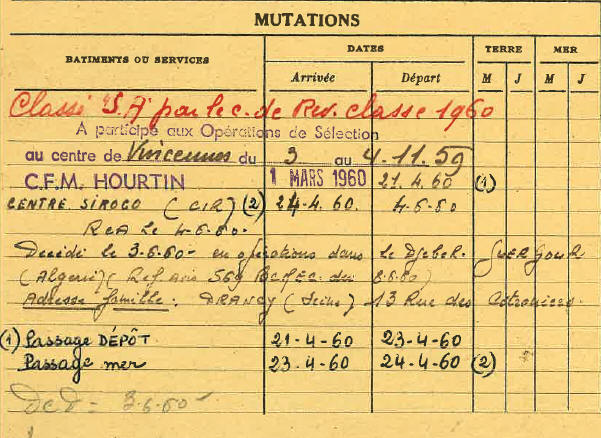 MUTATIONS
BATIMENTS OU SERVICES DATES TERRE MER
Arrivée Départ M J M J
Classé "S.A" par le c. de Rev. classe 1960
A participé aux Opérations de Sélection
au centre de Vincennes du 3 au 4.11.59
C.F.M. HOURTIN 1 MARS 1960 21.4.60 (1)
CENTRE SIROCO (CIR) (2) 24.4.60. 4-6-60
RCA le 4-6-60.
Décédé le 3-6-60 en opérations dans le Djebel. GUERGOUR
(Algérie) (Ref Avis 569 du 8-6-60)
Adresse famille: DRANCY (Seine) 13 Rue des
(1) Passage DÉPÔT 21-4-60 23-4-60
Passage mer 23.4-60 24-4-60 (2)
Dcd = 3-6-60